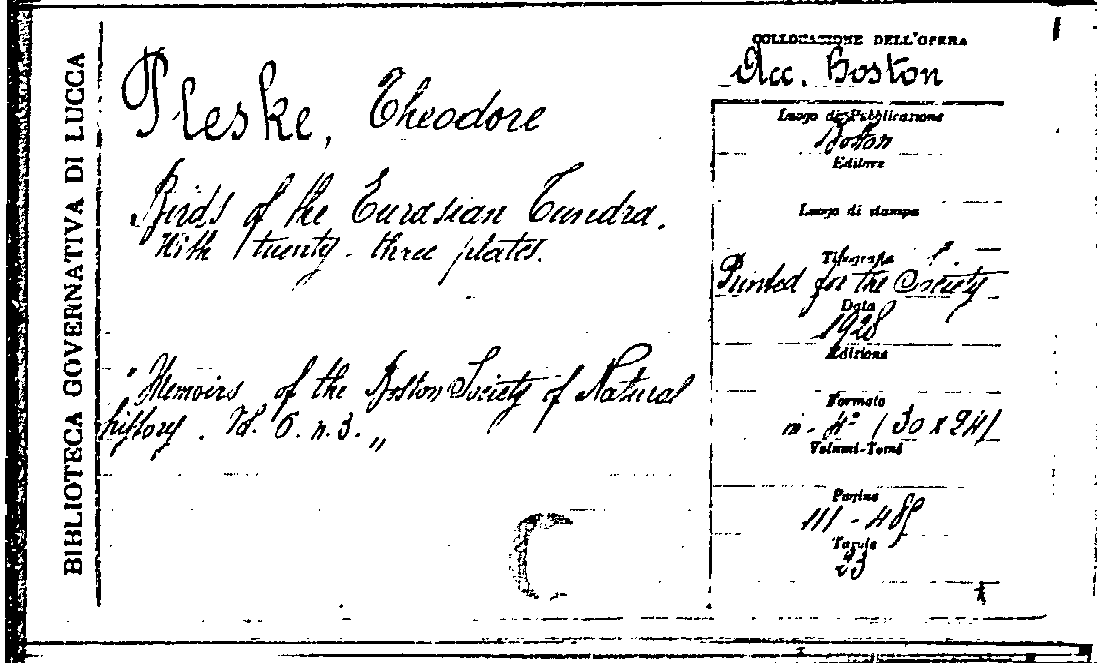 BIBLIOTECA GOVERNATIVA DI LUCCA
Pleske, Theodore
Birds of the Eurasian Tundra.
With twenty-three plates.
"Memoirs of the Boston Society of Natural
history. Vol. 6. n. 3. „
COLLOCAZIONE DELL'OPERA
Acc. Boston
Luogo di Pubblicazione
Boston
Editore
Luogo di stampa
Tipografia
Printed for the Society
Data
1928
Edizione
Formato
in-4° (30 x 24)
Volumi-Tomi
Pagine
111-485
Tavole
23